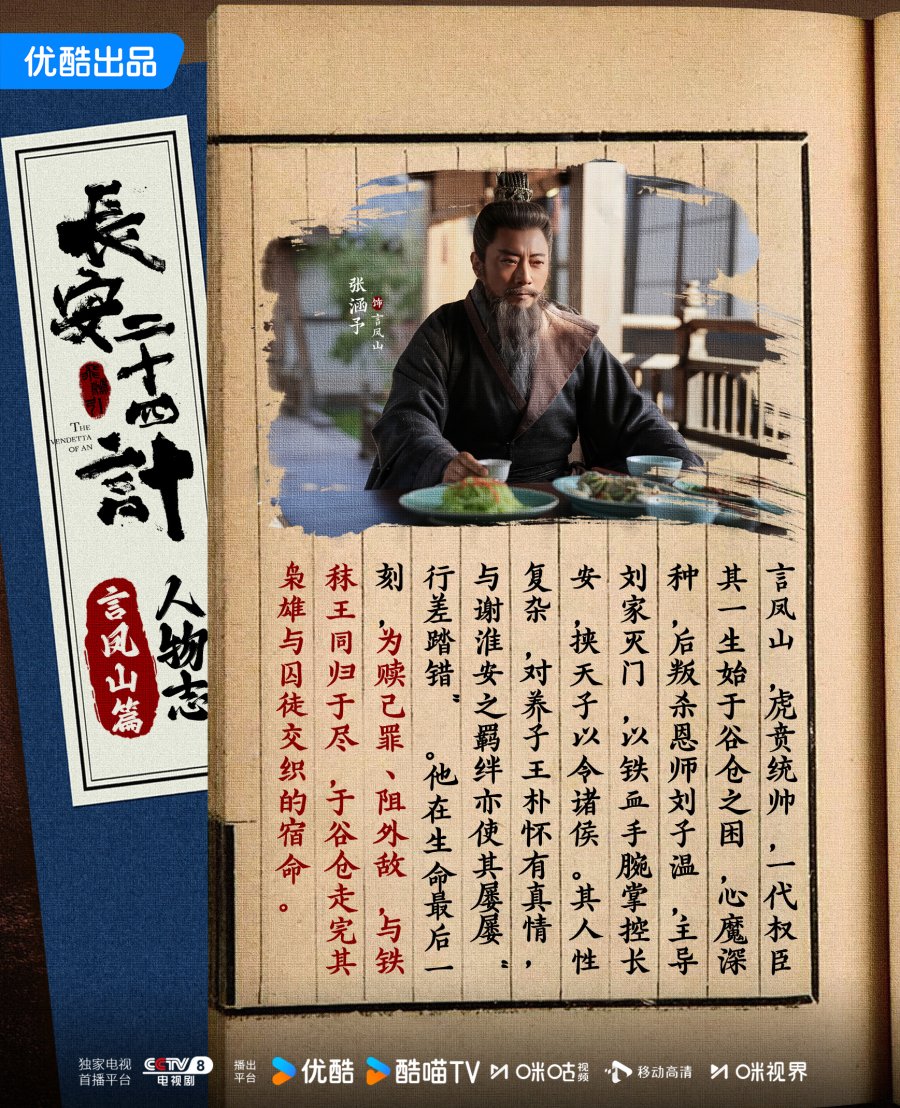 优酷出品
長安二十四計
THE
VENDETTA
OF AN
人物志
言凤山篇
张涵予
饰
言凤山
言凤山，虎贲统帅，一代权臣
其一生始于谷仓之困，心魔深
种，后叛杀恩师刘子温，主导
刘家灭门，以铁血手腕掌控长
安，挟天子以令诸侯。其人性
复杂，对养子王朴怀有真情，
与谢淮安之羁绊亦使其屡屡“
行差踏错”。他在生命最后一
刻，为赎己罪、阻外敌，与铁
秣王同归于尽，于谷仓走完其
枭雄与囚徒交织的宿命。
独家电视
首播平台
CCTV 8
电视剧
播出
平台
优酷
酷喵TV
咪咕视频
移动高清
咪视界